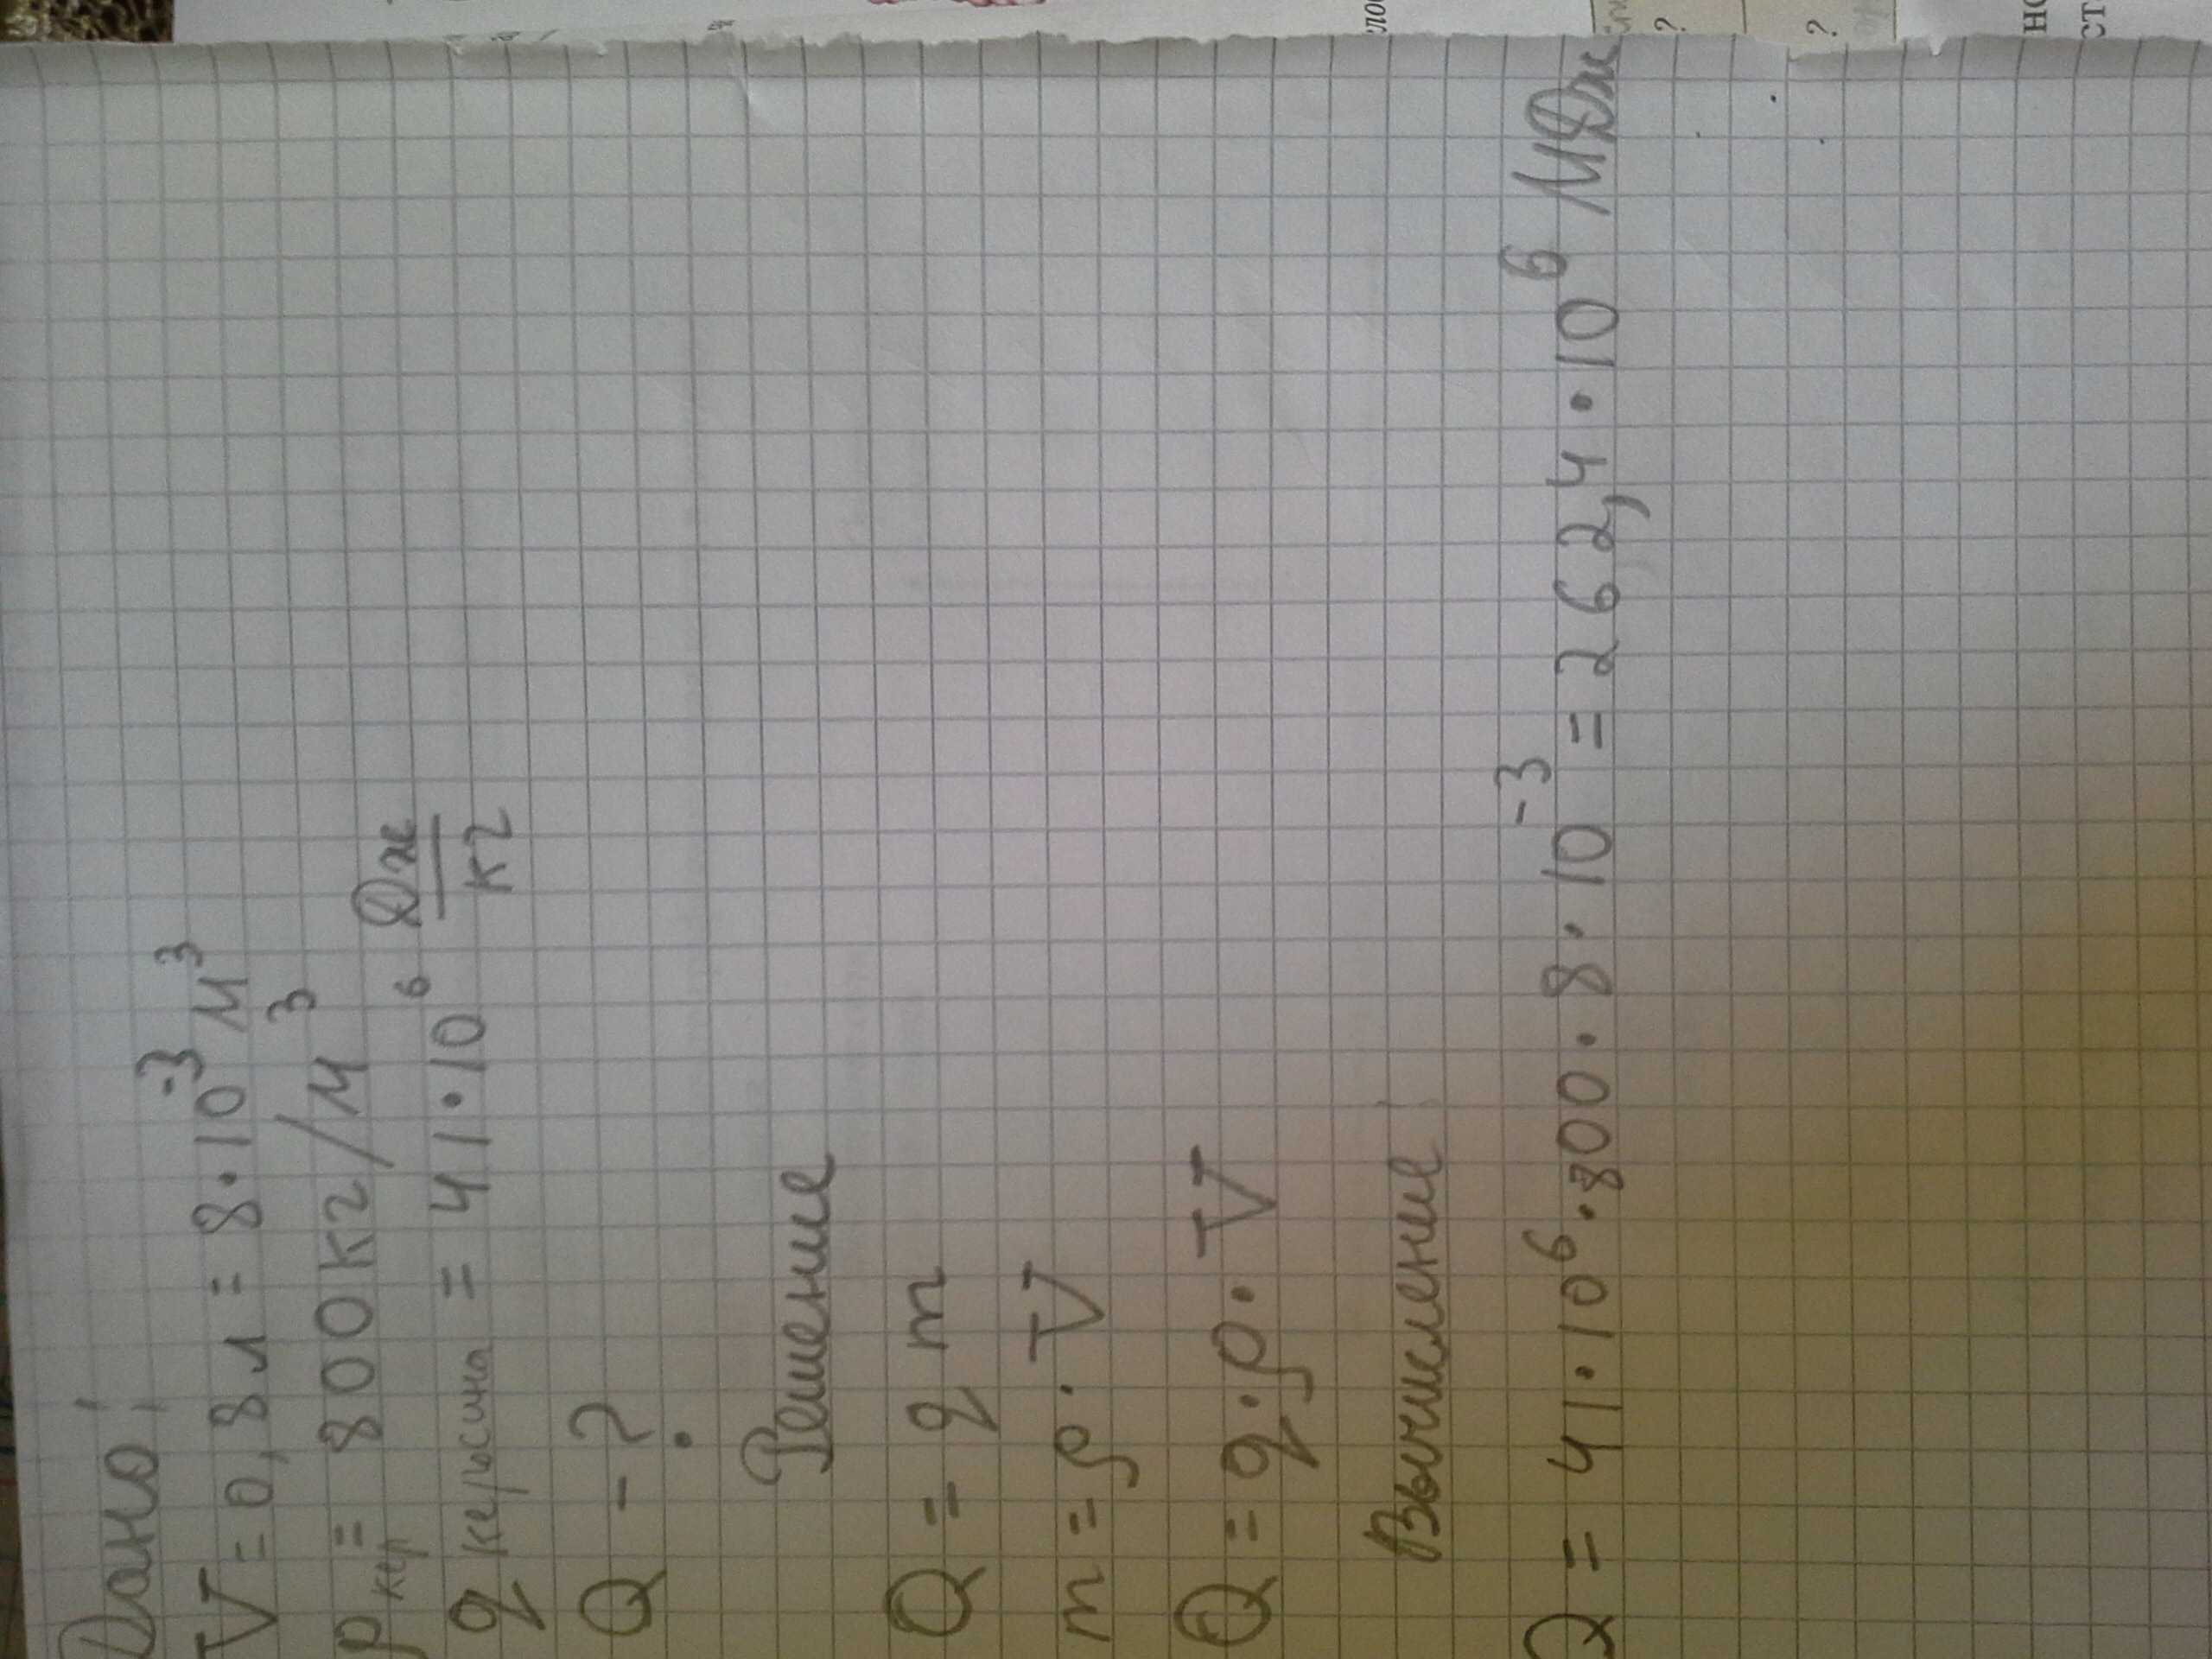 Дано:
V = 0,8 л = 8·10⁻³ м³
ρкер = 800 кг/м³
q керосина = 41·10⁶ Дж/кг
Q - ?
Решение
Q = q m
m = ρ · V
Q = q · ρ · V
Вычисление
Q = 41·10⁶·800·8·10⁻³ = 262,4·10⁶ МДж
?
?
но
ст